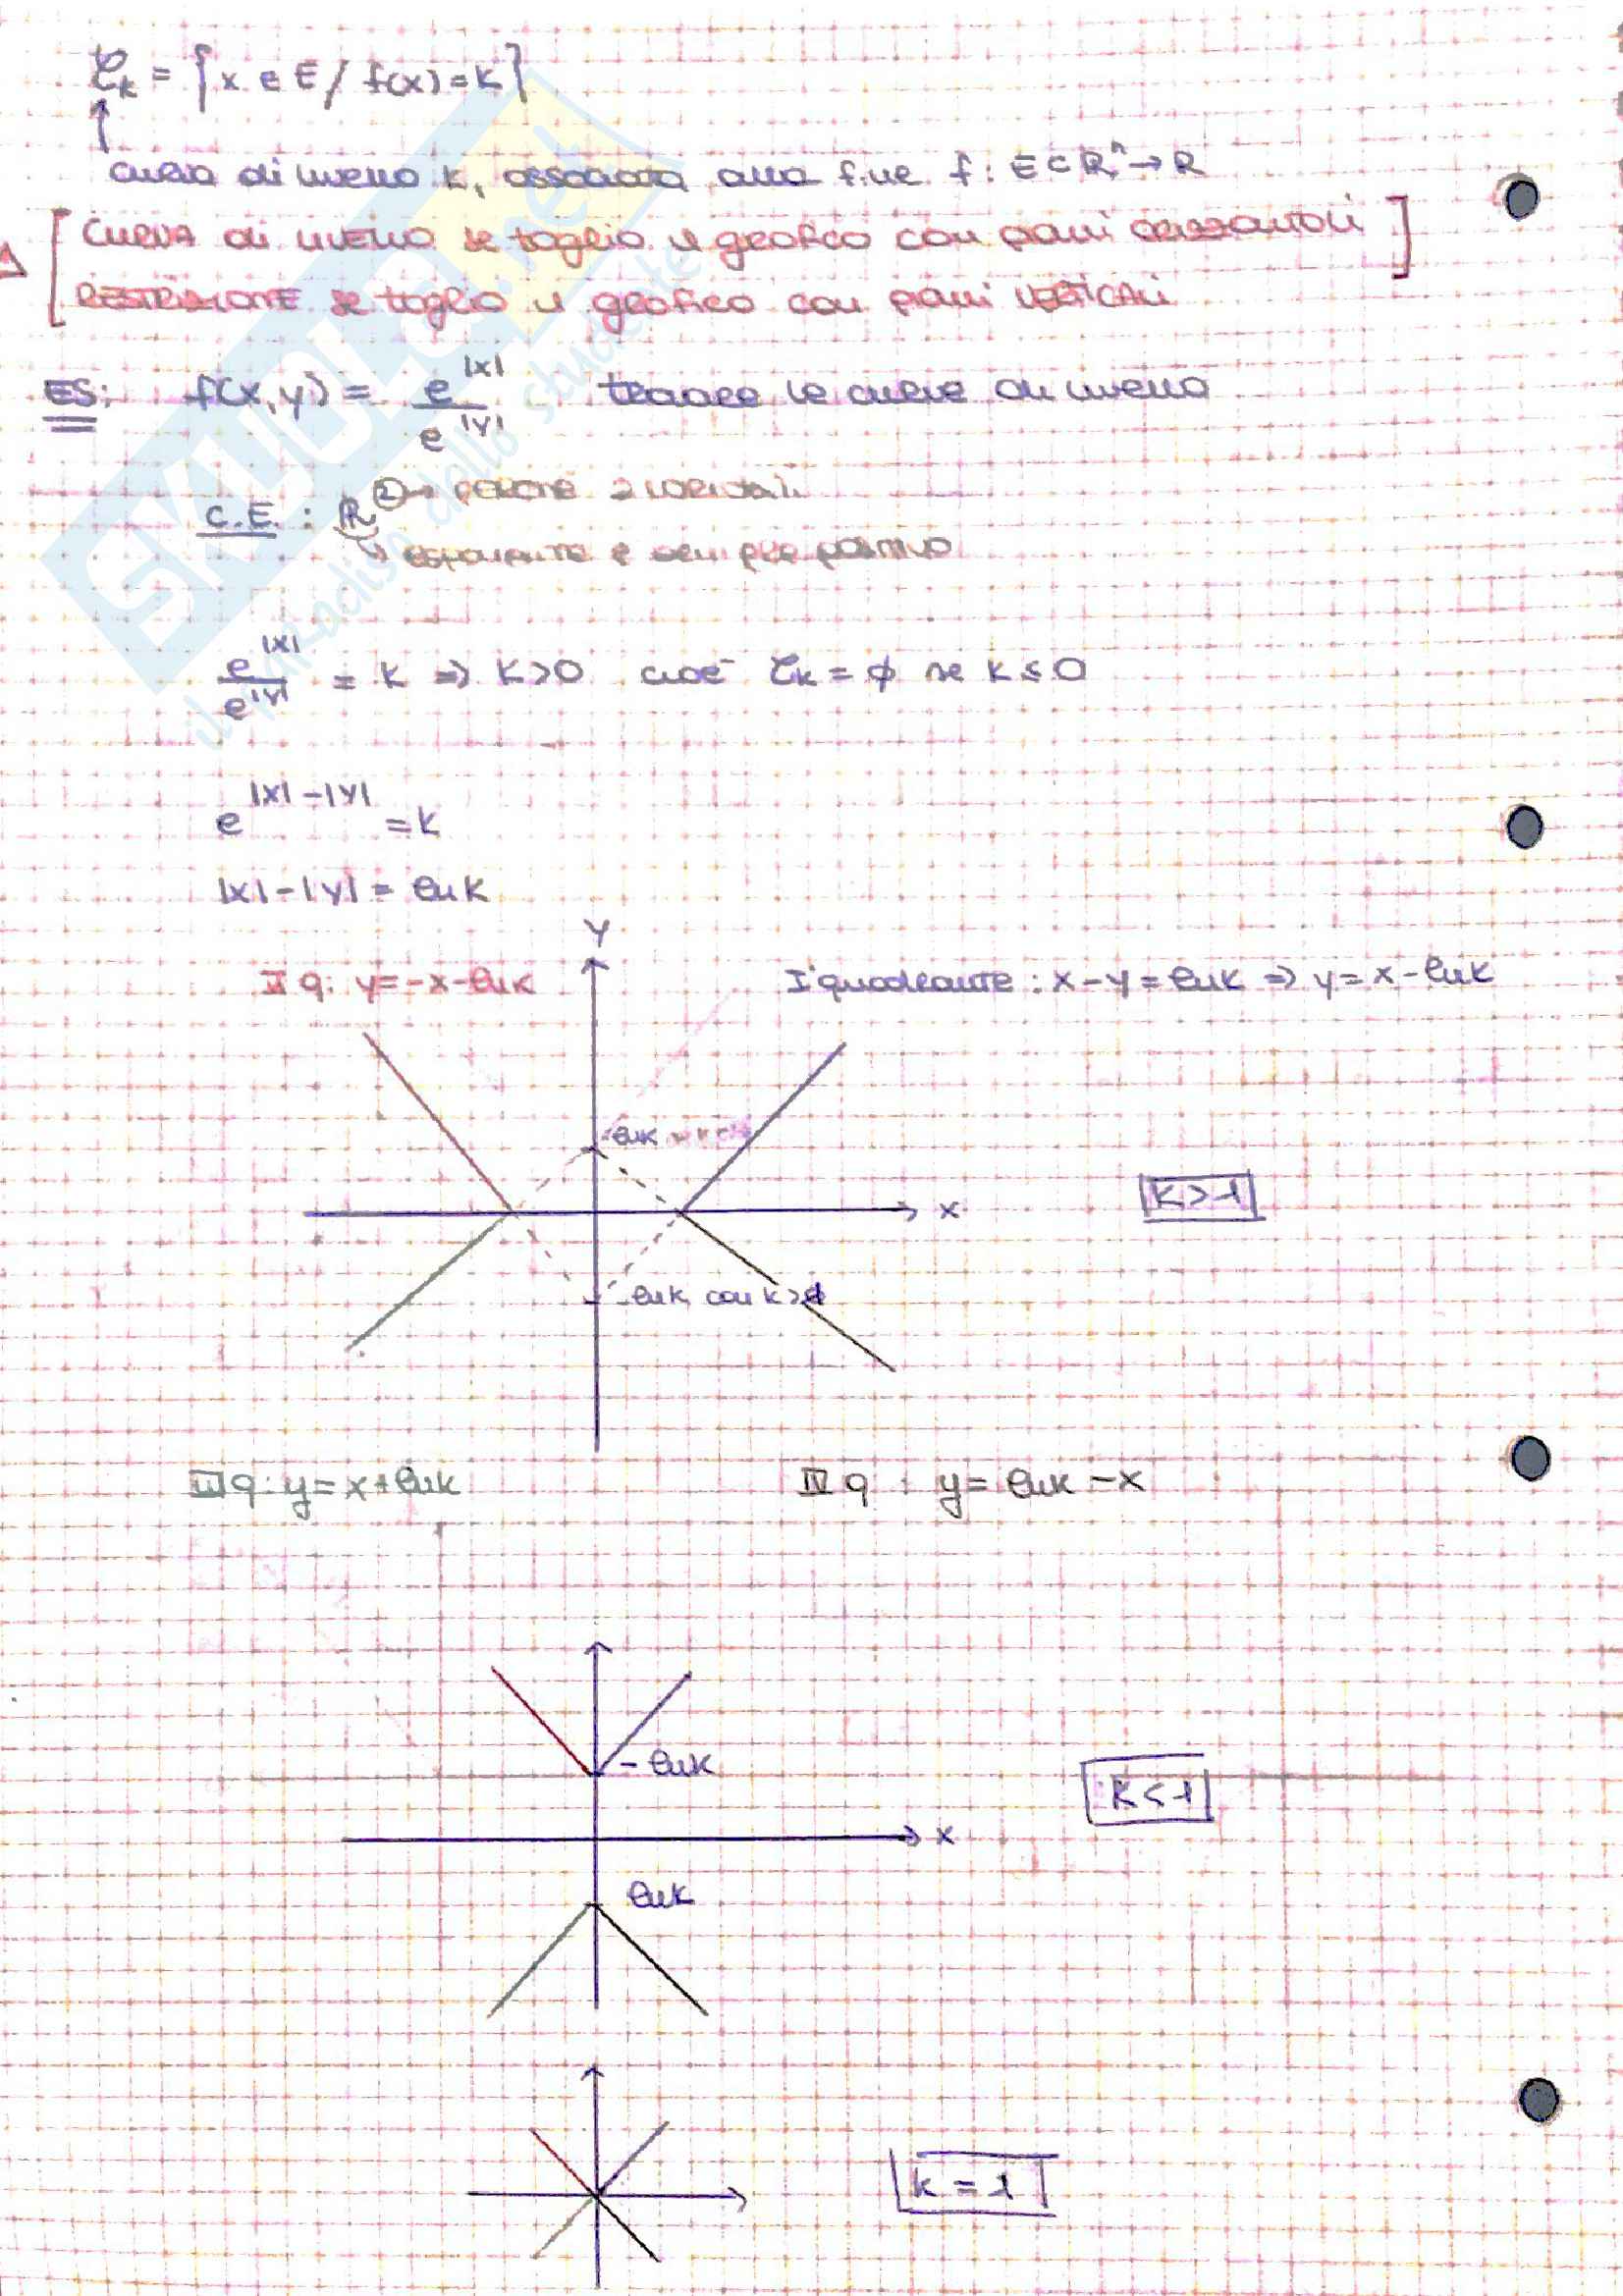 𝒞k = {x ∈ E / f(x) = k}
↑
curva di livello k, associata alla f.ne f: E ⊂ ℝⁿ → ℝ
[CURVA di livello se taglio il grafico con piani orizzontali
RESTRIZIONE se taglio il grafico con piani VERTICALI]
ES: f(x,y) = e^|x| / e^|y| tracciare le curve di livello
C.E. : ℝ² → perché 2 variabili
↳ esponente è sempre positivo
e^|x| / e^|y| = k ⇒ k>0 cioè 𝒞k = ∅ se k ≤ 0
e^|x|-|y| = k
|x|-|y| = ln k
Y
II q: y=-x-ln k
I quadrante: x-y = ln k ⇒ y = x - ln k
ln k
x
k>1
-ln k, con k>1
III q: y = x+ln k
IV q : y = ln k - x
- ln k
k<1
x
ln k
k = 1
SKUOLA.net
il paradiso dello studente